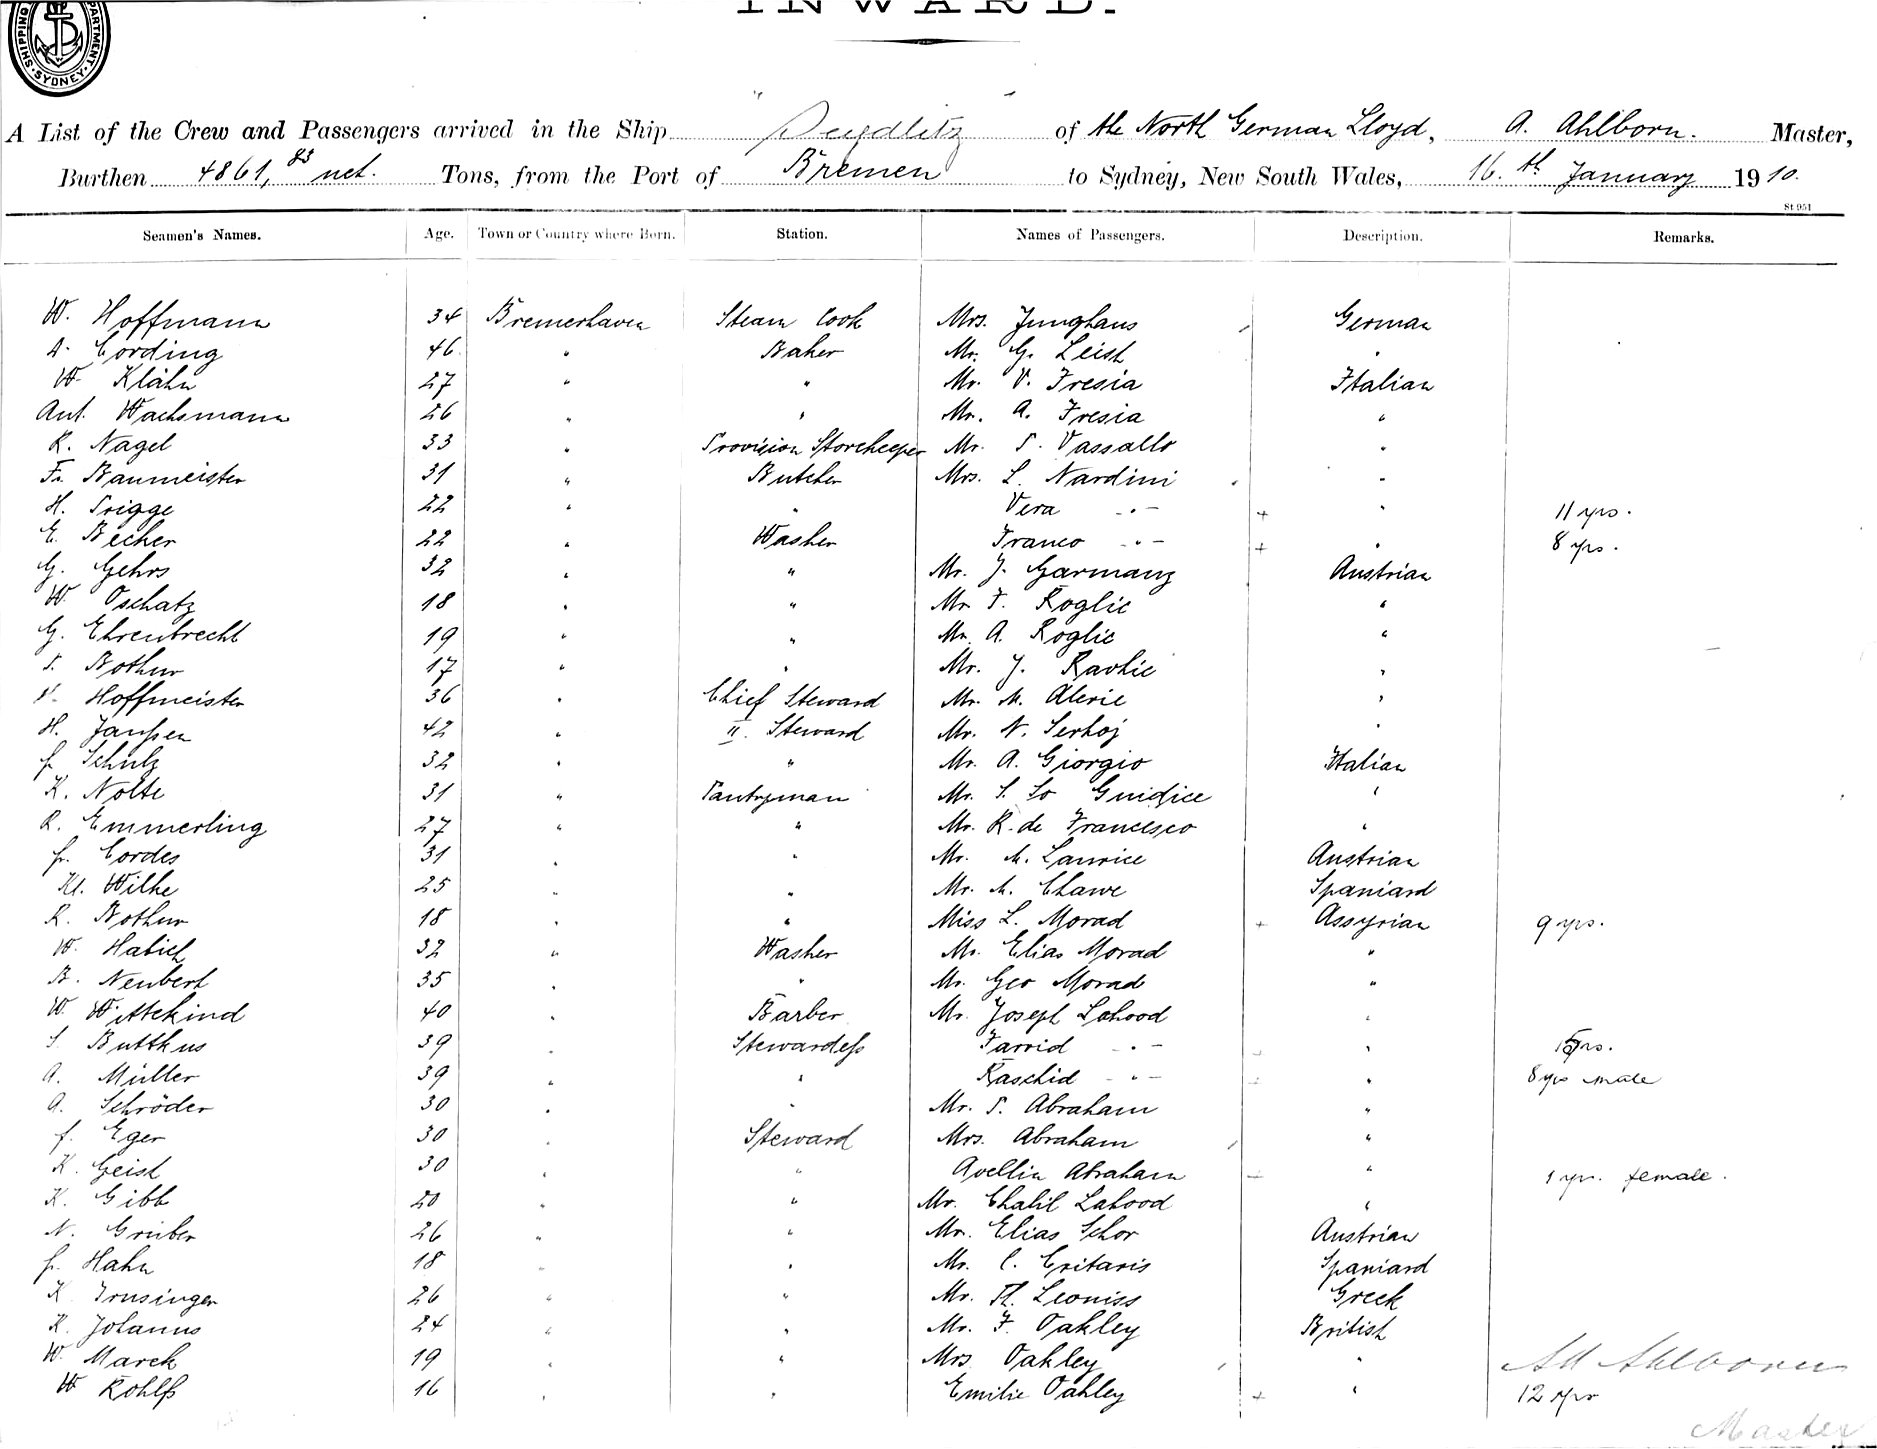 INWARD.
SHIPPING DEPARTMENT. SYDNEY.
A List of the Crew and Passengers arrived in the Ship " Seydlitz " of the North German Lloyd, A. Ahlborn. Master,
Burthen 4861,83 net. Tons, from the Port of Bremen to Sydney, New South Wales, 16.th January 1910.
St 951
Seamen's Names. Age. Town or Country where Born. Station. Names of Passengers. Description. Remarks.
W. Hoffmann 34 Bremerhaven Steam Cook Mrs. Junghans German
Cording 46 " Baker Mr. G. Leist "
W. Klähn 27 " " Mr. V. Fresia Italian
Ant. Wachsmann 26 " " Mr. A. Fresia "
R. Nagel 33 " Provision Storekeeper Mr. P. Vassallo "
Fr. Baumeister 31 " Butcher Mrs. L. Nardini "
H. Prigge 22 " " Vera - " - + " 11 yrs.
E. Becker 22 " Washer Franco - " - + " 8 yrs.
G. Gehrs 32 " " Mr. J. Garmanz Austrian
W. Oschatz 18 " " Mr. F. Roglic "
G. Ehrenbrecht 19 " " Mr. A. Roglic "
Bothur 17 " " Mr. J. Ravkic "
Hoffmeister 36 " Chief Steward Mr. M. Aleric "
H. Janßen 42 " II. Steward Mr. N. Serhoj "
Schulz 32 " " Mr. A. Giorgio Italian
K. Nolte 31 " Pantryman Mr. S. Lo Guidice "
R. Emmerling 27 " " Mr. R. de Francesco "
Fr. Cordes 31 " " Mr. M. Laurice Austrian
Kl. Wilke 25 " " Mr. M. Chawe Spaniard
R. Bothur 18 " " Miss L. Morad + Assyrian 9 yrs.
W. Habich 32 " Washer Mr. Elias Morad "
B. Neubert 35 " " Mr. Geo Morad "
W. Wittekind 40 " Barber Mr. Joseph Lahood "
S. Butthus 39 " Stewardeß Farrid - " - " yrs.
A. Müller 39 " " Raschid - " - " 8 yrs male
A. Schröder 30 " " Mr. P. Abraham "
f. Eger 30 " Steward Mrs. Abraham "
K. Geist 30 " " Avellin Abraham " 1 yr. female.
K. Gibb 20 " " Mr. Chalil Lahood "
N. Gruber 26 " " Mr. Elias Schor Austrian
Fr. Hahn 18 " " Mr. C. Critaris Spaniard
K. Trusinger 26 " " Mr. Th. Leoniss Greek
K. Johanns 24 " " Mr. F. Oakley British
W. Marek 19 " " Mrs Oakley "
Ad Ahlborn
W. Rohlfs 16 " " Emilie Oakley + " 12 yrs
Master